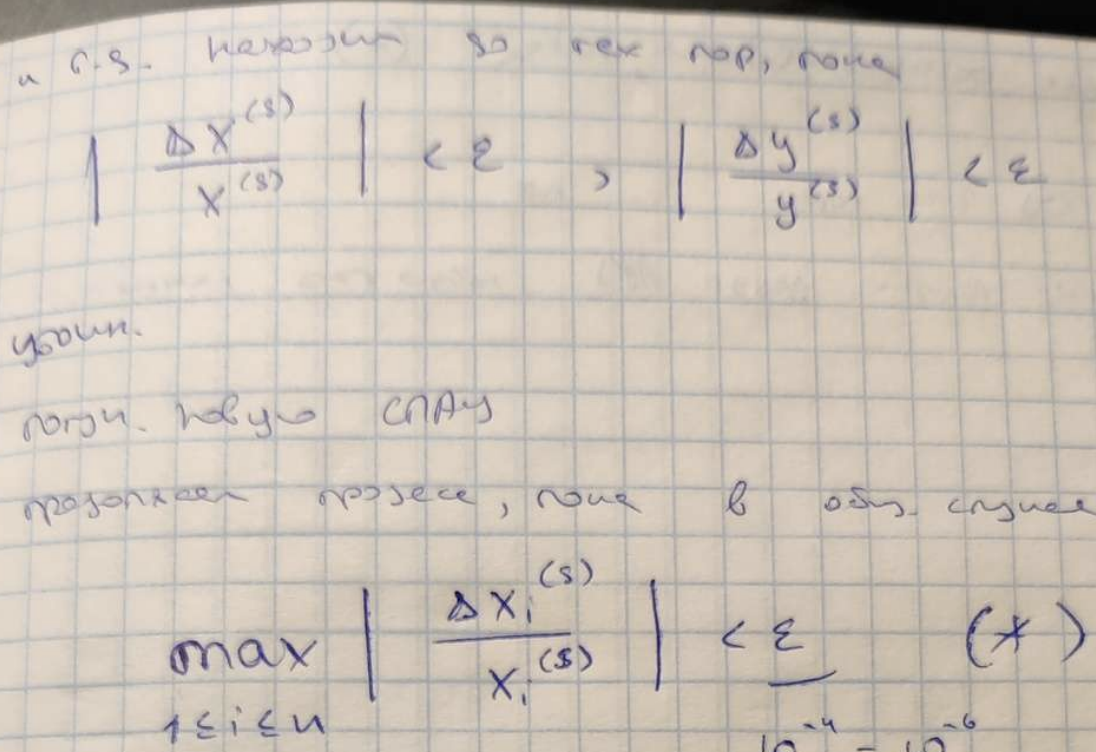 и т.д. находим до тех пор, пока
| Δx^(s) / x^(s) | < ε , | Δy^(s) / y^(s) | < ε
получ. новую СЛАУ
продолжаем процесс, пока в общ. случае
max | Δx_i^(s) / x_i^(s) | < ε (*)
1≤i≤n
10^-4 - 10^-6